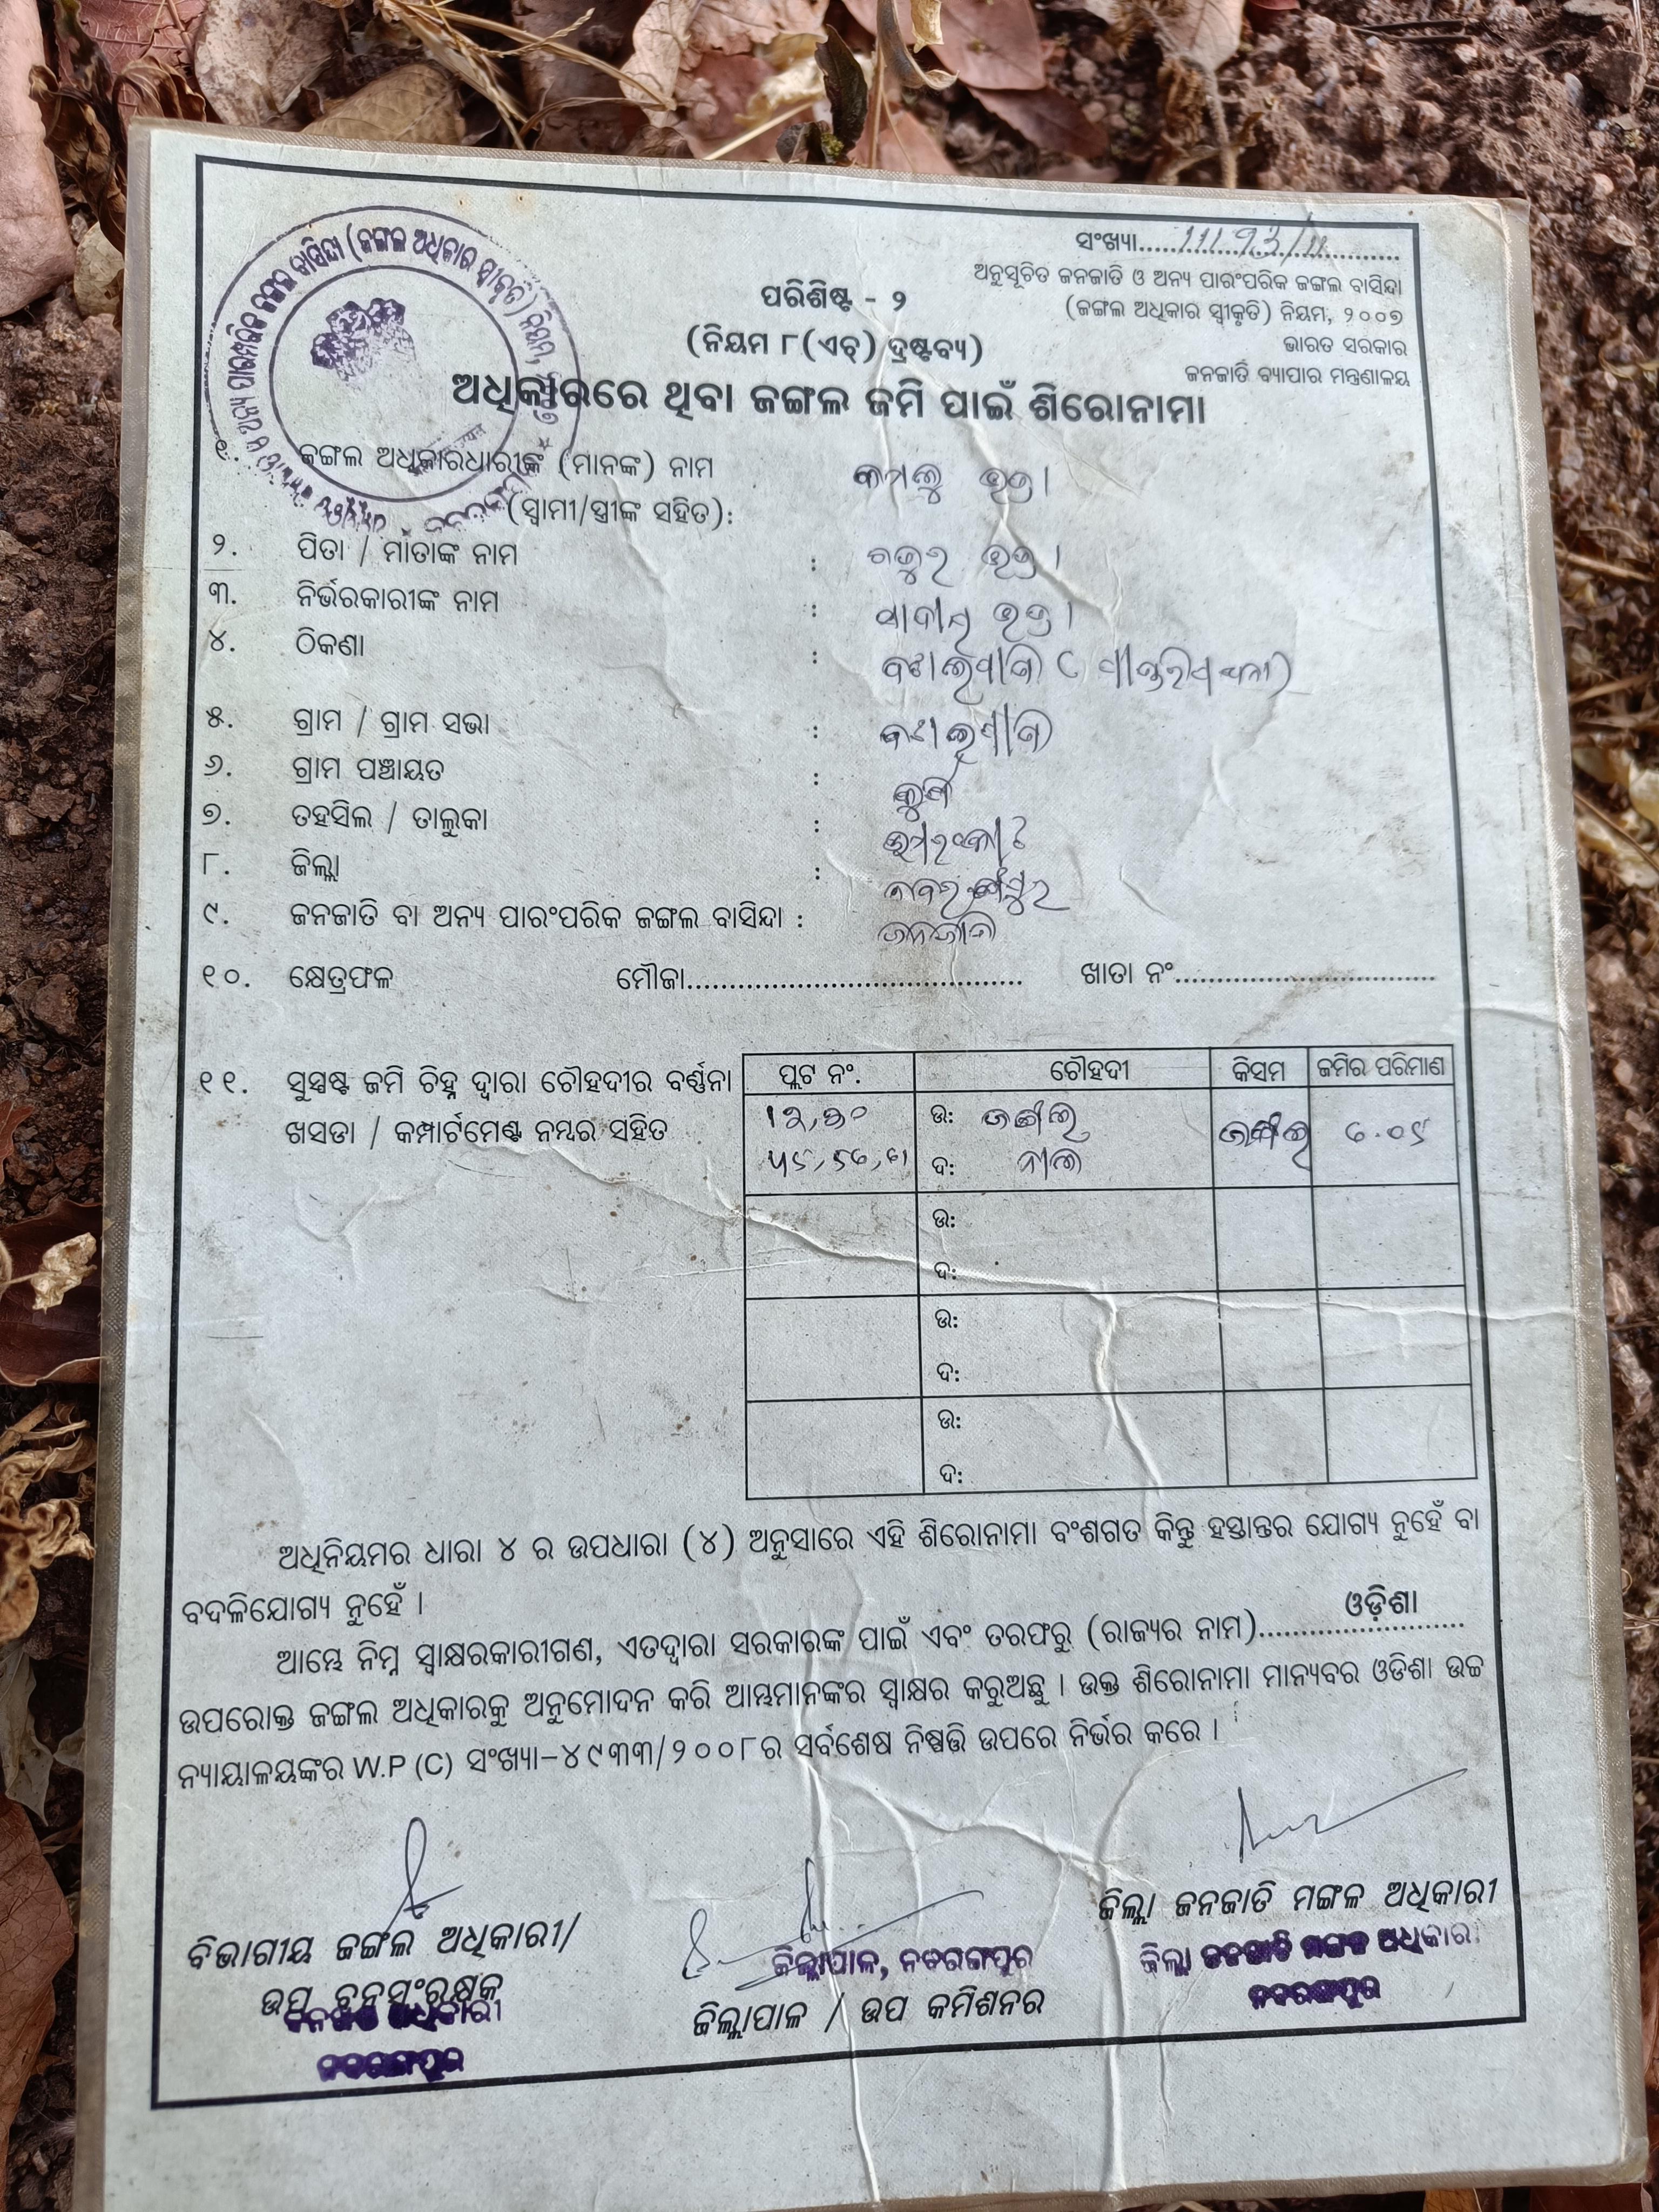 ସଂଖ୍ୟା
ଅନୁସୂଚିତ ଜନଜାତି ଓ ଅନ୍ୟ ପାରଂପରିକ ଜଙ୍ଗଲ ବାସିନ୍ଦା
(ଜଙ୍ଗଲ ଅଧିକାର ସ୍ୱୀକୃତି) ନିୟମ, ୨୦୦୭
ଭାରତ ସରକାର
ଜନଜାତି ବ୍ୟାପାର ମନ୍ତ୍ରଣାଳୟ
ପରିଶିଷ୍ଟ - ୨
(ନିୟମ ୮(ଏଚ୍) ଦ୍ରଷ୍ଟବ୍ୟ)
ଅଧିକାରରେ ଥିବା ଜଙ୍ଗଲ ଜମି ପାଇଁ ଶିରୋନାମା
୧. ଜଙ୍ଗଲ ଅଧିକାରଧାରୀଙ୍କ (ମାନଙ୍କ) ନାମ
(ସ୍ୱାମୀ/ସ୍ତ୍ରୀଙ୍କ ସହିତ):
୨. ପିତା / ମାତାଙ୍କ ନାମ :
୩. ନିର୍ଭରକାରୀଙ୍କ ନାମ :
୪. ଠିକଣା :
୫. ଗ୍ରାମ / ଗ୍ରାମ ସଭା :
୬. ଗ୍ରାମ ପଞ୍ଚାୟତ :
୭. ତହସିଲ / ତାଲୁକା :
୮. ଜିଲ୍ଲା : ନବରଙ୍ଗପୁର
୯. ଜନଜାତି ବା ଅନ୍ୟ ପାରଂପରିକ ଜଙ୍ଗଲ ବାସିନ୍ଦା : ଜନଜାତି
୧୦. କ୍ଷେତ୍ରଫଳ ମୌଜା........................................ ଖାତା ନଂ...............................
୧୧. ସୁସ୍ପଷ୍ଟ ଜମି ଚିହ୍ନ ଦ୍ୱାରା ଚୌହଦୀର ବର୍ଣ୍ଣନା
ଖସଡା / କମ୍ପାର୍ଟମେଣ୍ଟ ନମ୍ବର ସହିତ
ପ୍ଲଟ ନଂ. ଚୌହଦୀ କିସମ ଜମିର ପରିମାଣ
ଉ: ଜଙ୍ଗଲ ଜଙ୍ଗଲ
ଦ:
ଉ:
ଦ:
ଉ:
ଦ:
ଉ:
ଦ:
ଅଧିନିୟମର ଧାରା ୪ ର ଉପଧାରା (୪) ଅନୁସାରେ ଏହି ଶିରୋନାମା ବଂଶଗତ କିନ୍ତୁ ହସ୍ତାନ୍ତର ଯୋଗ୍ୟ ନୁହେଁ ବା
ବଦଳିଯୋଗ୍ୟ ନୁହେଁ ।
ଆମ୍ଭେ ନିମ୍ନ ସ୍ୱାକ୍ଷରକାରୀଗଣ, ଏତଦ୍ୱାରା ସରକାରଙ୍କ ପାଇଁ ଏବଂ ତରଫରୁ (ରାଜ୍ୟର ନାମ)....ଓଡ଼ିଶା....
ଉପରୋକ୍ତ ଜଙ୍ଗଲ ଅଧିକାରକୁ ଅନୁମୋଦନ କରି ଆମ୍ଭମାନଙ୍କର ସ୍ୱାକ୍ଷର କରୁଅଛୁ । ଉକ୍ତ ଶିରୋନାମା ମାନ୍ୟବର ଓଡିଶା ଉଚ୍ଚ
ନ୍ୟାୟାଳୟଙ୍କର W.P (C) ସଂଖ୍ୟା-୪୯୩୩/୨୦୦୮ର ସର୍ବଶେଷ ନିଷ୍ପତ୍ତି ଉପରେ ନିର୍ଭର କରେ ।
ବିଭାଗୀୟ ଜଙ୍ଗଲ ଅଧିକାରୀ/
ଉପ ବନସଂରକ୍ଷକ
ନବରଙ୍ଗପୁର
ଜିଲ୍ଲାପାଳ, ନବରଙ୍ଗପୁର
ଜିଲ୍ଲାପାଳ / ଉପ କମିଶନର
ଜିଲ୍ଲା ଜନଜାତି ମଙ୍ଗଳ ଅଧିକାରୀ
ଜିଲ୍ଲା ଜନଜାତି ମଙ୍ଗଳ ଅଧିକାରୀ
ନବରଙ୍ଗପୁର